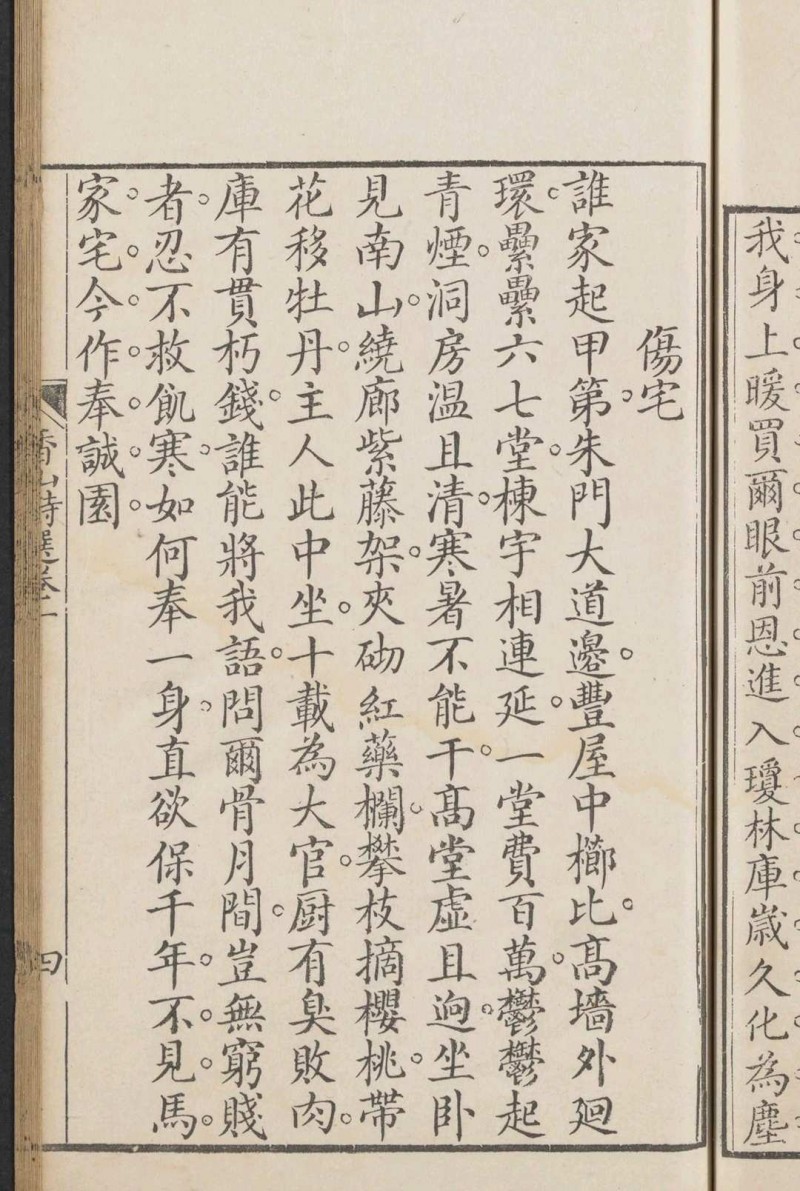 我身上暖買爾眼前恩進入瓊林庫歲久化為塵
傷宅
誰家起甲第。朱門大道邊。豐屋中櫛比。高墻外廻
環。纍纍六七堂。棟宇相連延。一堂費百萬。鬱鬱起
青煙。洞房温且清。寒暑不能干。高堂虚且逈。坐卧
見南山。繞廊紫藤架。夾砌紅藥欄。攀枝摘櫻桃。帶
花移牡丹。主人此中坐。十載為大官。厨有臭敗肉。
庫有貫朽錢。誰能將我語。問爾骨月間。豈無窮賤
者。忍不救飢寒。如何奉一身。直欲保千年。不。見。馬。
家。宅。今。作。奉。誠。園。
香山詩選卷一
四